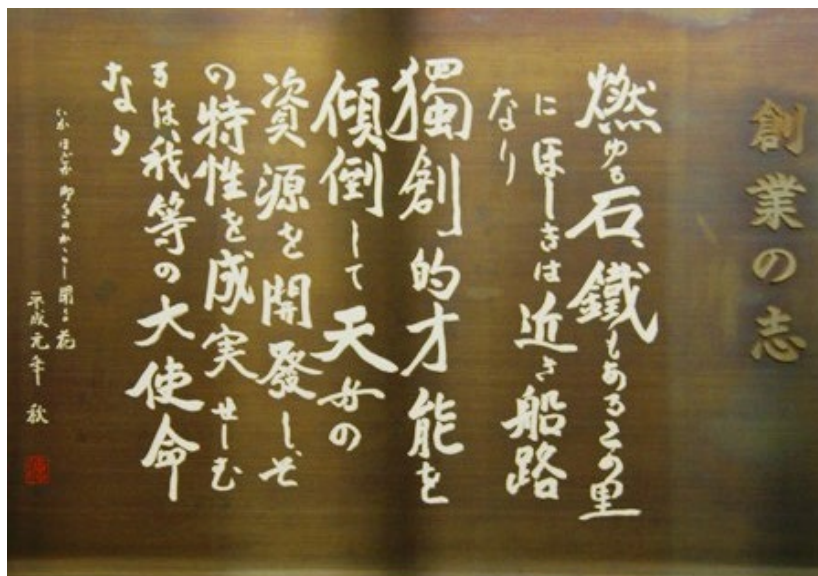 創業の志
燃ゆる石、鐵もあるこの里
にほしきは近き船路
なり
獨創的才能を
傾倒して天与の
資源を開發し、そ
の特性を成実せしむ
るは、我等の大使命
なり
開る花
平成元年 秋